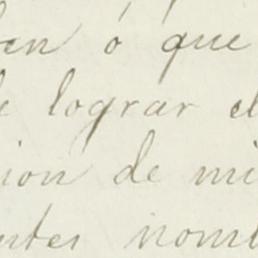 en ó que
e lograr el
ion de mi
ntes nom